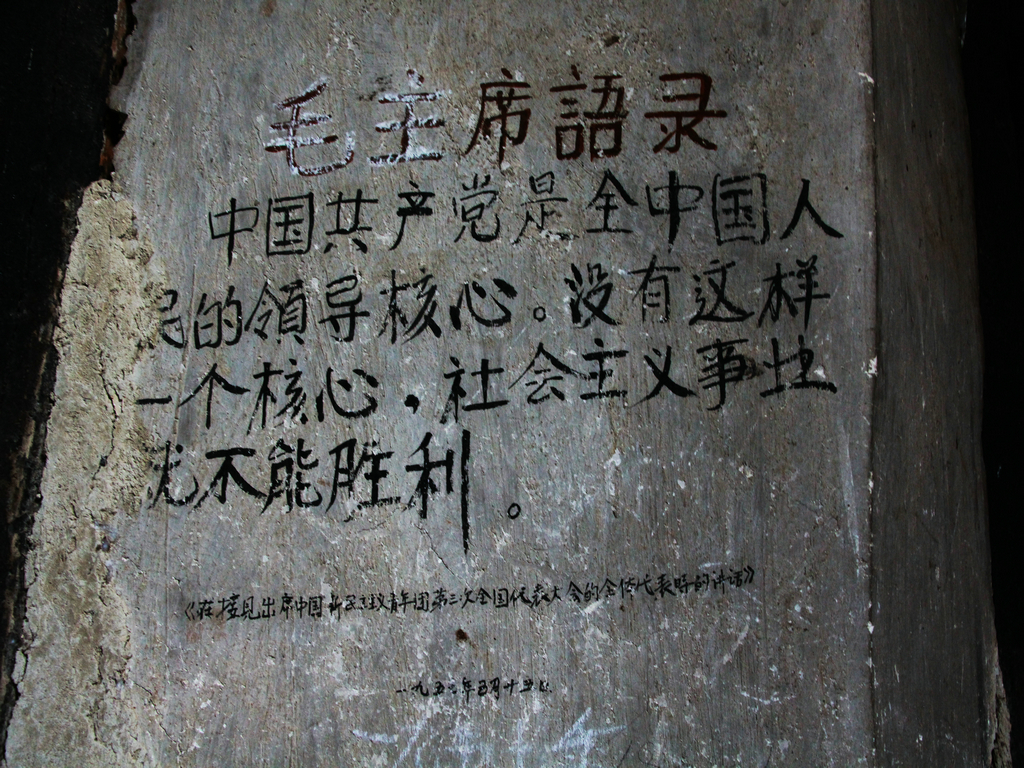 毛主席語录
中国共产党是全中国人
民的領导核心。没有这样
一个核心，社会主义事业
就不能胜利。
《在接见出席中国新民主主义青年团第三次全国代表大会的全体代表时的讲话》
一九五七年五月十五日